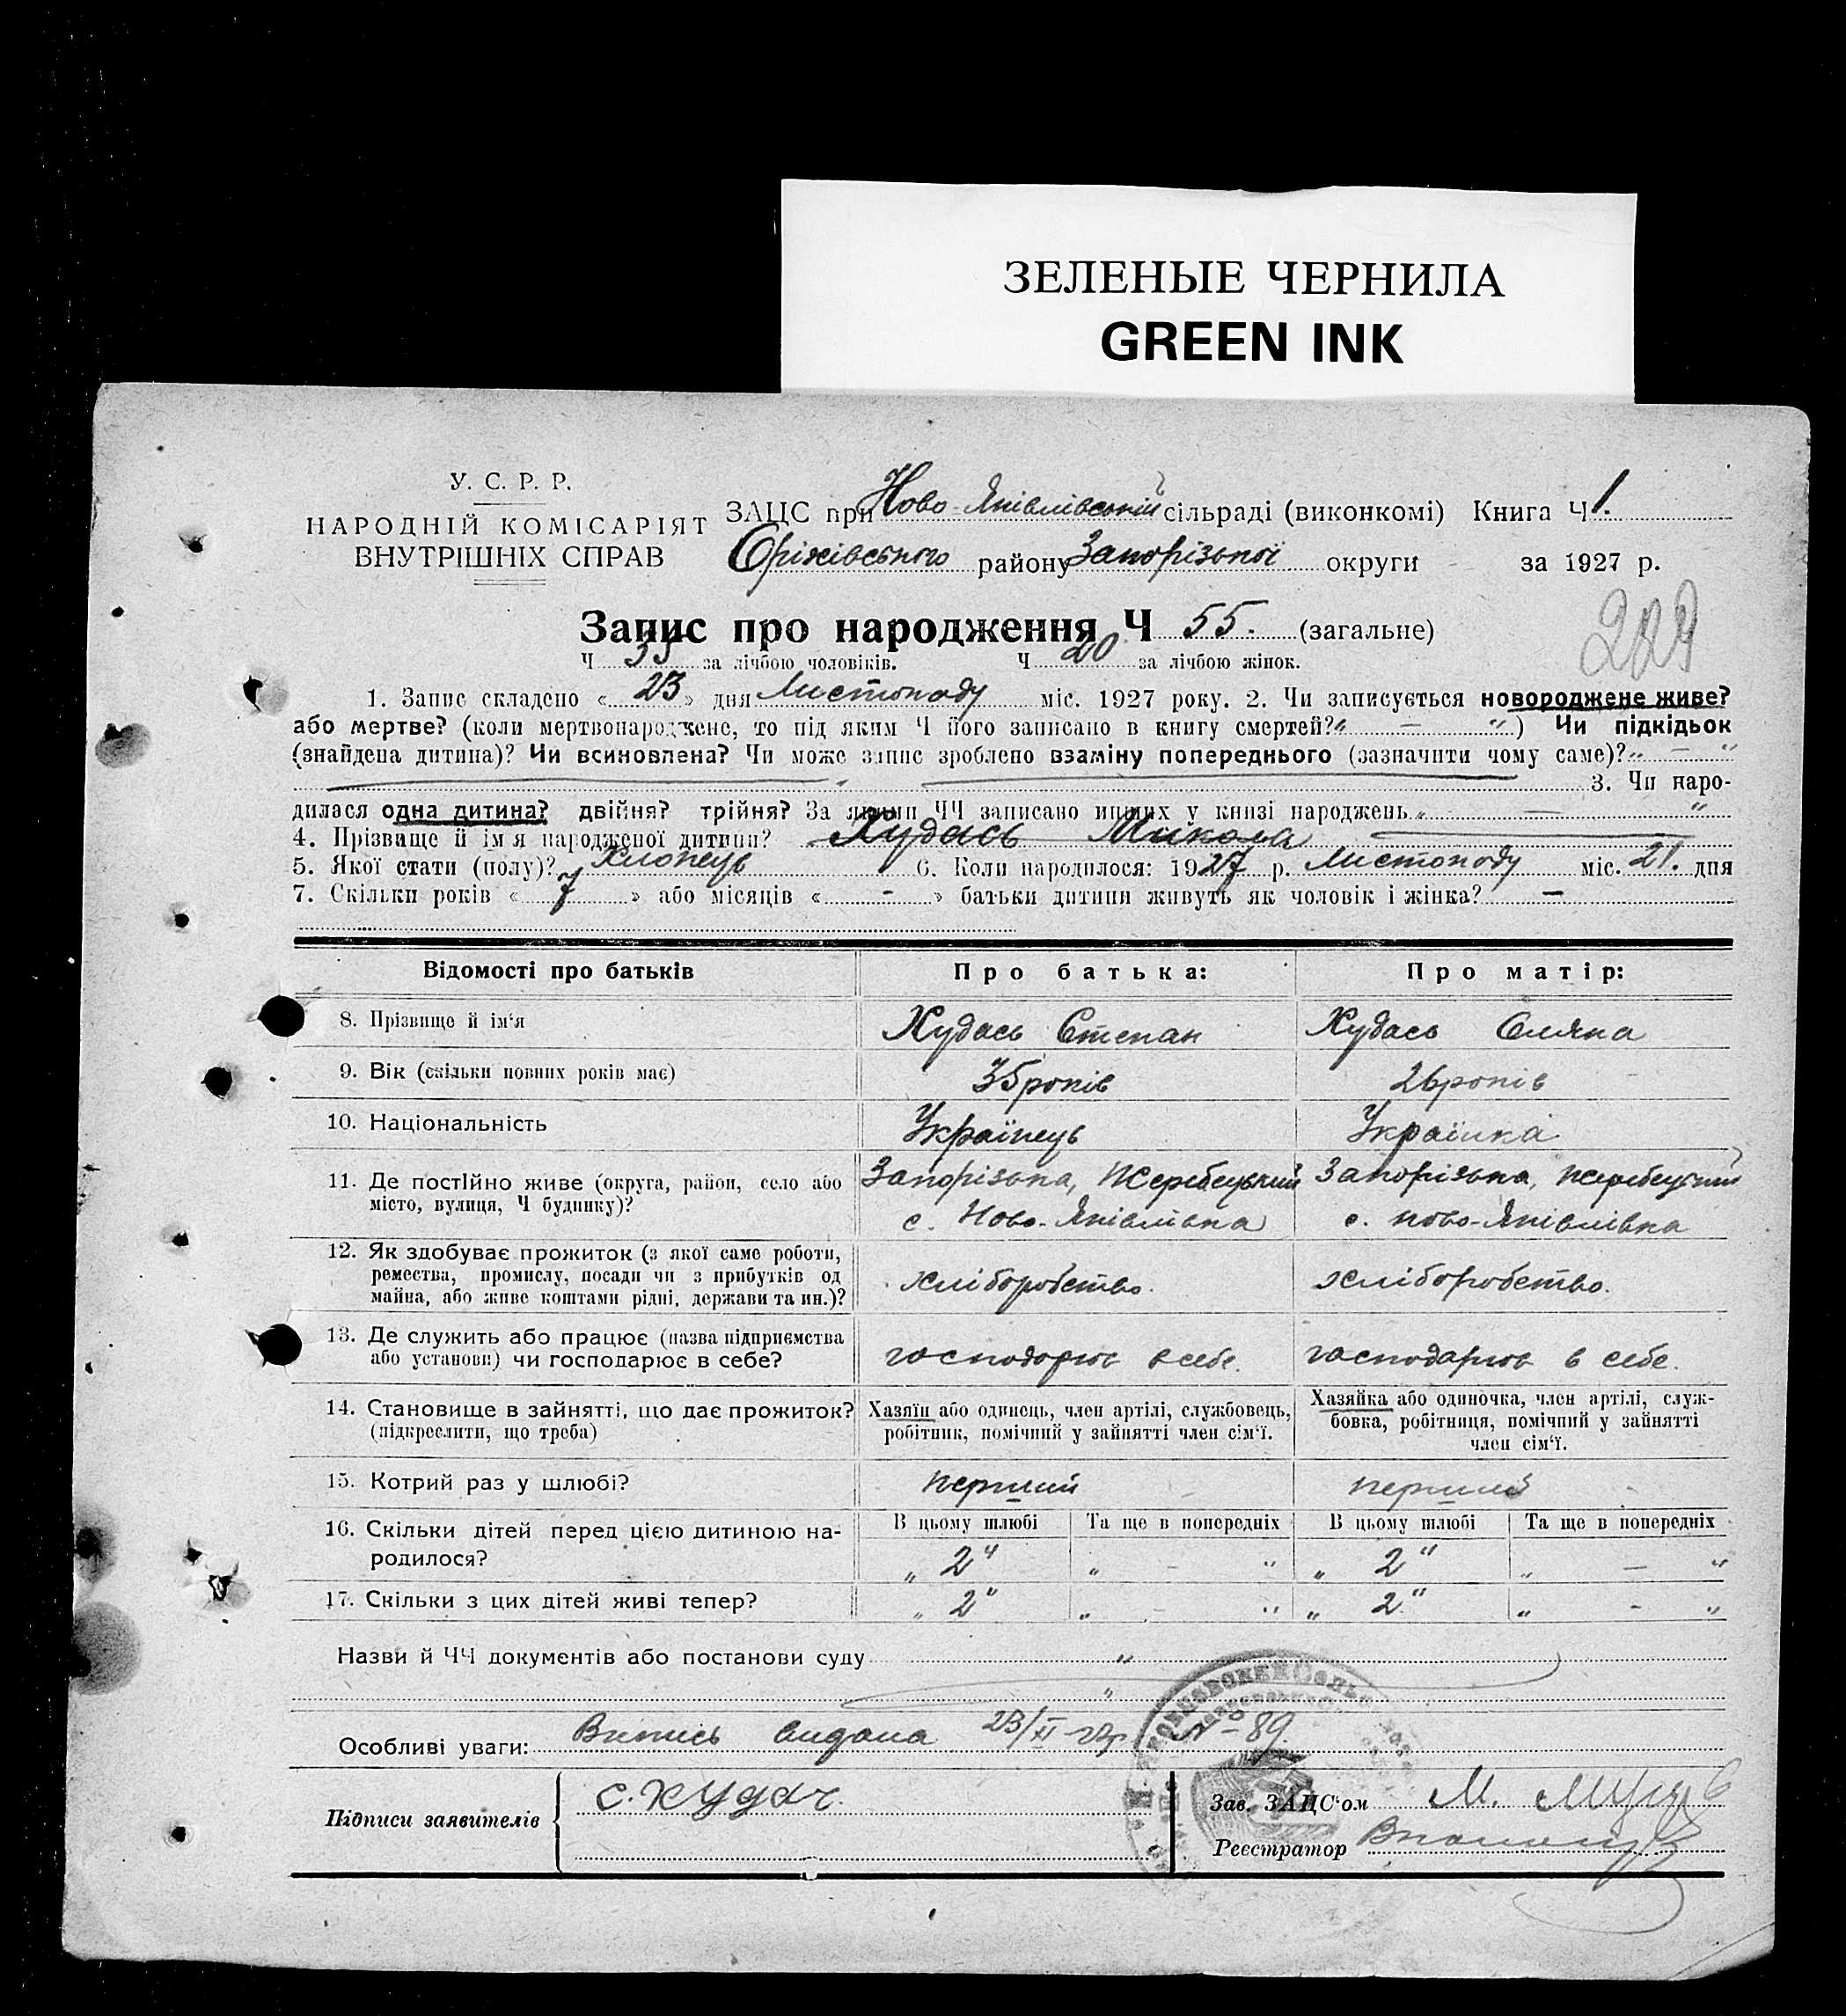 ЗЕЛЕНЫЕ ЧЕРНИЛА
GREEN INK
У. С. Р. Р.
НАРОДНІЙ КОМІСАРІЯТ
ВНУТРІШНІХ СПРАВ
ЗАЦС при Ново-Яківлівській сільраді (виконкомі) Книга Ч 1.
Оріхівського району Запорізької округи за 1927 р.
Запис про народження Ч 55. (загальне)
Ч 35 за лічбою чоловіків. Ч 20 за лічбою жінок.
1. Запис складено « 23 » дня Листопаду міс. 1927 року. 2. Чи записується новороджене живе?
або мертве? (коли мертвонароджене, то під яким Ч його записано в книгу смертей? „ — “) Чи підкідьок
(знайдена дитина)? Чи всиновлена? Чи може запис зроблено взаміну попереднього (зазначити чому саме)? „ — “
3. Чи наро-
дилася одна дитина? двійня? трійня? За якими ЧЧ записано инших у книзі народжень „ — “
4. Прізвище й ім‘я народженої дитини? Худась Микола
5. Якої стати (полу)? Хлопець 6. Коли народилося: 1927 р. Листопаду міс. 21. дня
7. Скільки років « 7 » або місяців « - » батьки дитини живуть як чоловік і жінка? —
Відомості про батьків Про батька: Про матір:
8. Прізвище й ім‘я Худась Степан Худась Оляна
9. Вік (скільки повних років має) 35 років 26 років
10. Національність Українець Українка
11. Де постійно живе (округа, район, село або Запорізька, Жеребецький Запорізька, Жеребецький
місто, вулиця, Ч будинку)? с. Ново-Яківлівка с. Ново-Яківлівка
12. Як здобуває прожиток (з якої саме роботи,
ремества, промислу, посади чи з прибутків од хліборобство. хліборобство.
майна, або живе коштами рідні, держави та ин.)?
13. Де служить або працює (назва підприємства
або установи) чи господарює в себе? господарює в себе. господарює в себе.
14. Становище в зайнятті, що дає прожиток? Хазяїн або одинець, член артілі, службовець, Хазяйка або одиночка, член артілі, служ-
(підкреслити, що треба) робітник, помічний у зайнятті член сім‘ї. бовка, робітниця, помічний у зайнятті
член сім‘ї.
15. Котрий раз у шлюбі? перший перший
16. Скільки дітей перед цією дитиною на- В цьому шлюбі Та ще в попередніх В цьому шлюбі Та ще в попередніх
родилося? „ 2 “ „ - “ „ 2 “ „ — “
17. Скільки з цих дітей живі тепер? „ 2 “ „ - “ „ 2 “ „ - “
Назви й ЧЧ документів або постанови суду „
„
Особливі уваги: Випись видана 23/XI-27р. № 89.
Підписи заявителів с. худас. Зав. ЗАЦС‘ом М.
Реєстратор